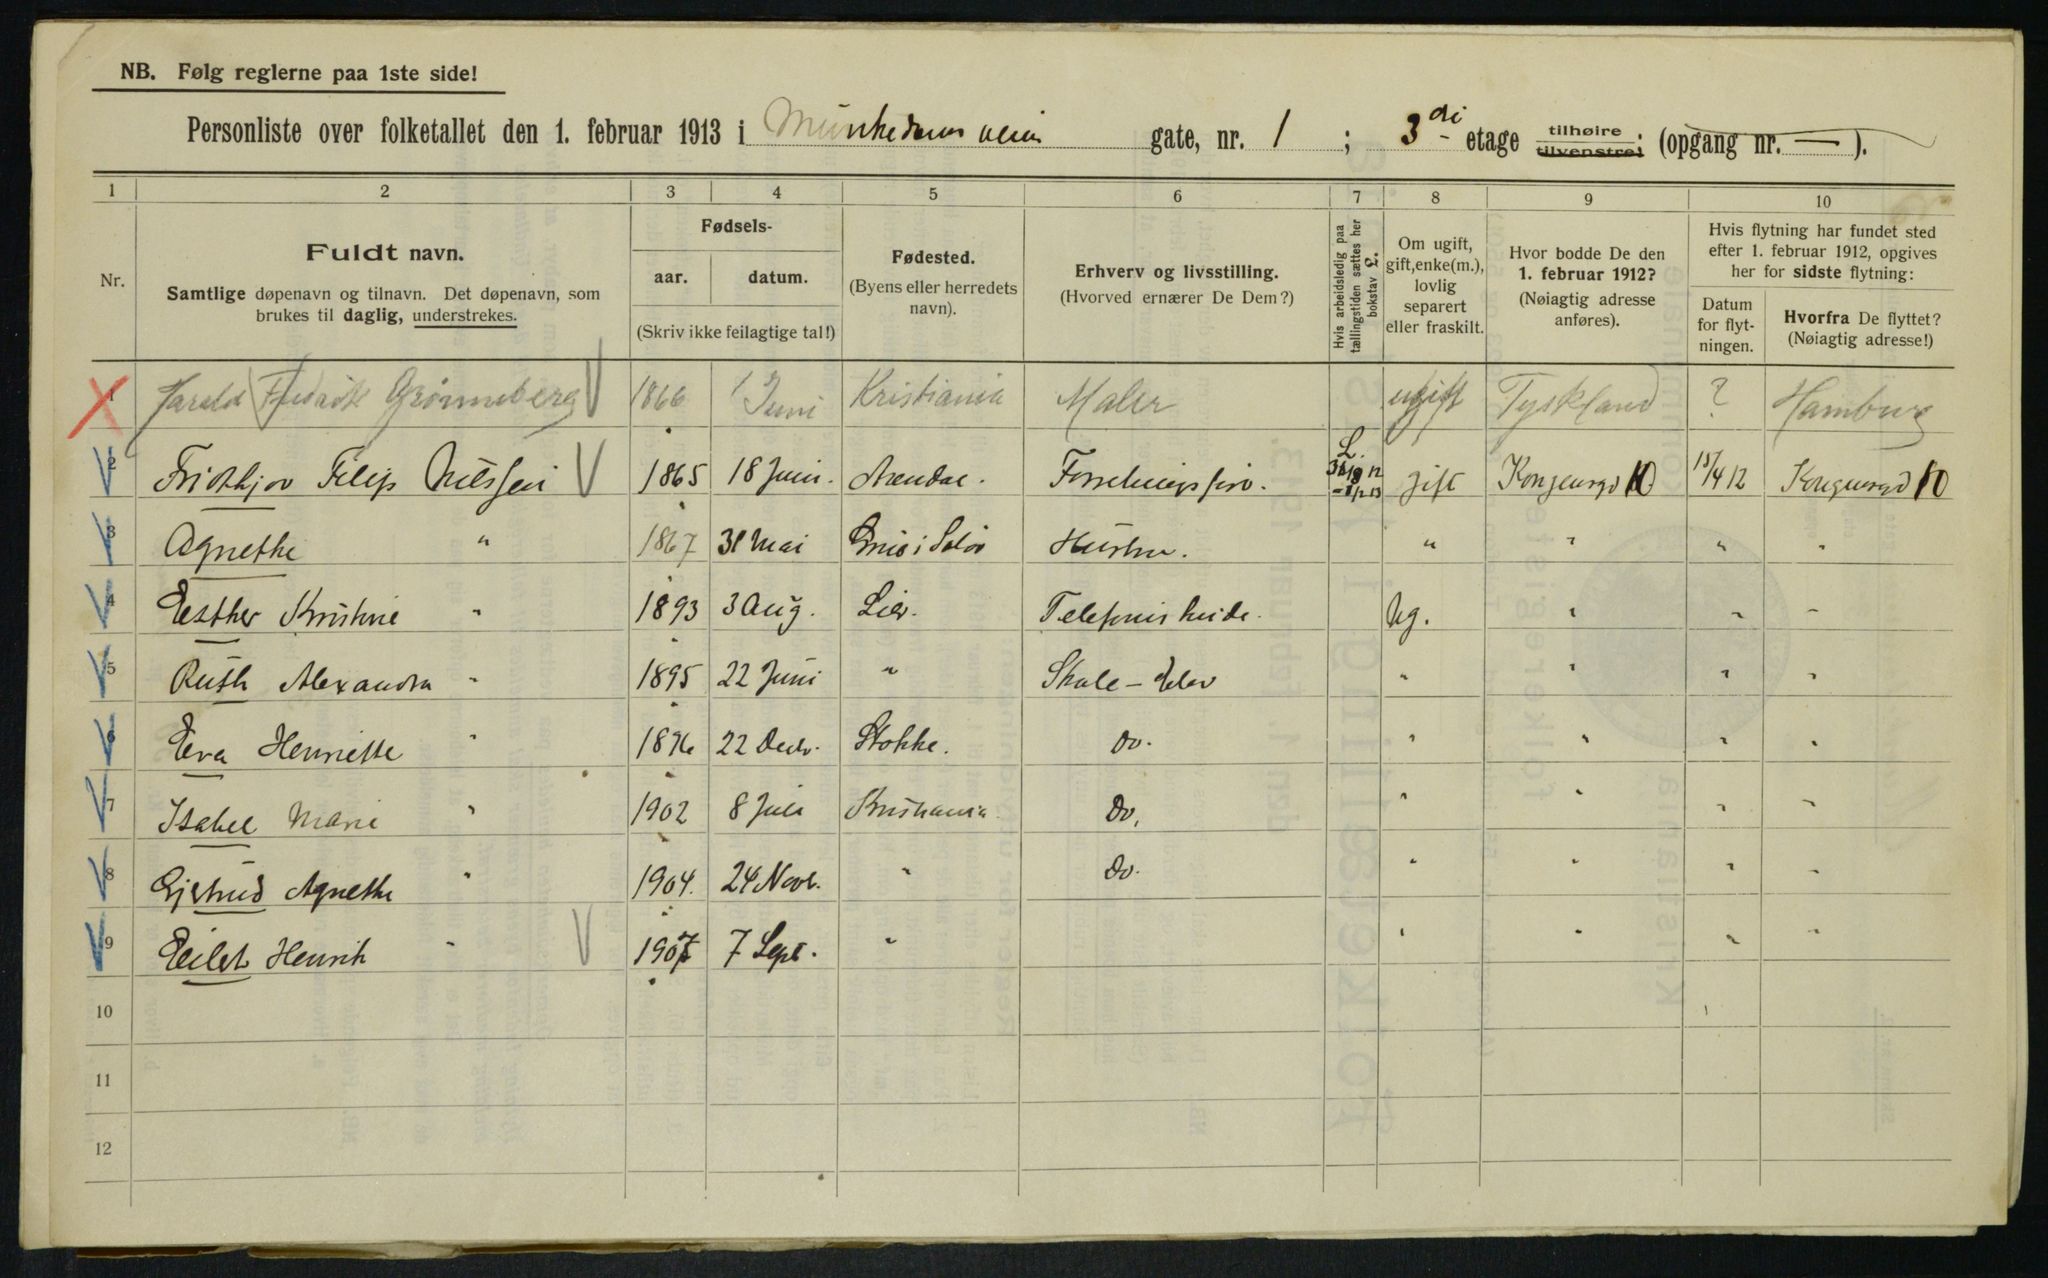 NB. Følg reglerne paa 1ste side!
Personliste over folketallet den 1. februar 1913 i Munkedamsveien gate, nr. 1 ; 3di etage tilhøire tilvenstre; (opgang nr. — ).
1 2 3 4 5 6 7 8 9 10
Nr.
Fuldt navn.
Samtlige døpenavn og tilnavn. Det døpenavn, som
brukes til daglig, understrekes.
Fødsels-
aar. datum.
(Skriv ikke feilagtige tal!)
Fødested.
(Byens eller herredets
navn).
Erhverv og livsstilling.
(Hvorved ernærer De Dem?)
Hvis arbeidsledig paa
tællingstiden sættes her
bokstav L.
Om ugift,
gift, enke(m.),
lovlig
separert
eller fraskilt.
Hvor bodde De den
1. februar 1912?
(Nøiagtig adresse
anføres).
Hvis flytning har fundet sted
efter 1. februar 1912, opgives
her for sidste flytning:
Datum
for flyt-
ningen.
Hvorfra De flyttet?
(Nøiagtig adresse!)
1 Harald Fredrik Grønneberg 1866 1 Juni Kristiania Maler ugift Tyskland ? Hamburg
2 Fridthjov Filip Nilssen 1865 18 Juni. Arendal. Forretningsfører. L. gift Kongensgd 10 15/4 12 Kongensgd 10
3 Agnethe " 1867 31 Mai Hustru. " " " "
4 Esther Kristine " 1893 3 Aug. Lier. Telefonistinde. Ug. " " "
5 Ruth Alexandra " 1895 22 Juni " Skole-Elev " " " "
6 Eva Henriette " 1896 22 Decbr. Stokke. Do. " " " "
7 Isabel Marie " 1902 8 Juli Kristiania Do. " " " "
8 Gjertrud Agnethe " 1904. 24 Novb. " Do. " " " "
9 Eilet Henrik " 1907 7 Sept. " " " " "
10
11
12